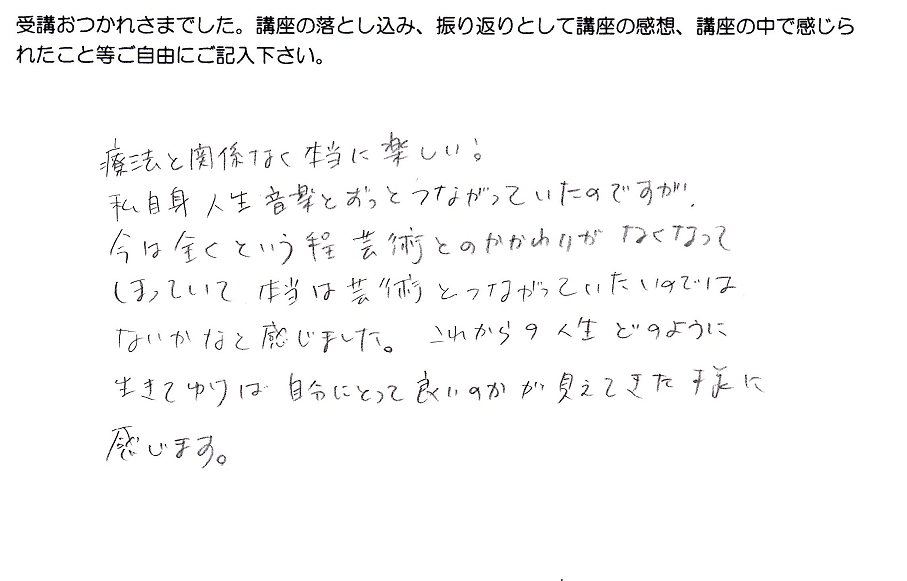 受講おつかれさまでした。講座の落とし込み、振り返りとして講座の感想、講座の中で感じら
れたこと等ご自由にご記入下さい。
療法と関係なく本当に楽しい!
私自身 人生 音楽とずっとつながっていたのですが、
今は全くという程 芸術とのかかわりが なくなって
しまっていて 本当は芸術とつながっていたいのでは
ないかなと感じました。これからの人生 どのように
生きてゆけば 自分にとって良いのかが見えてきた様に
感じます。